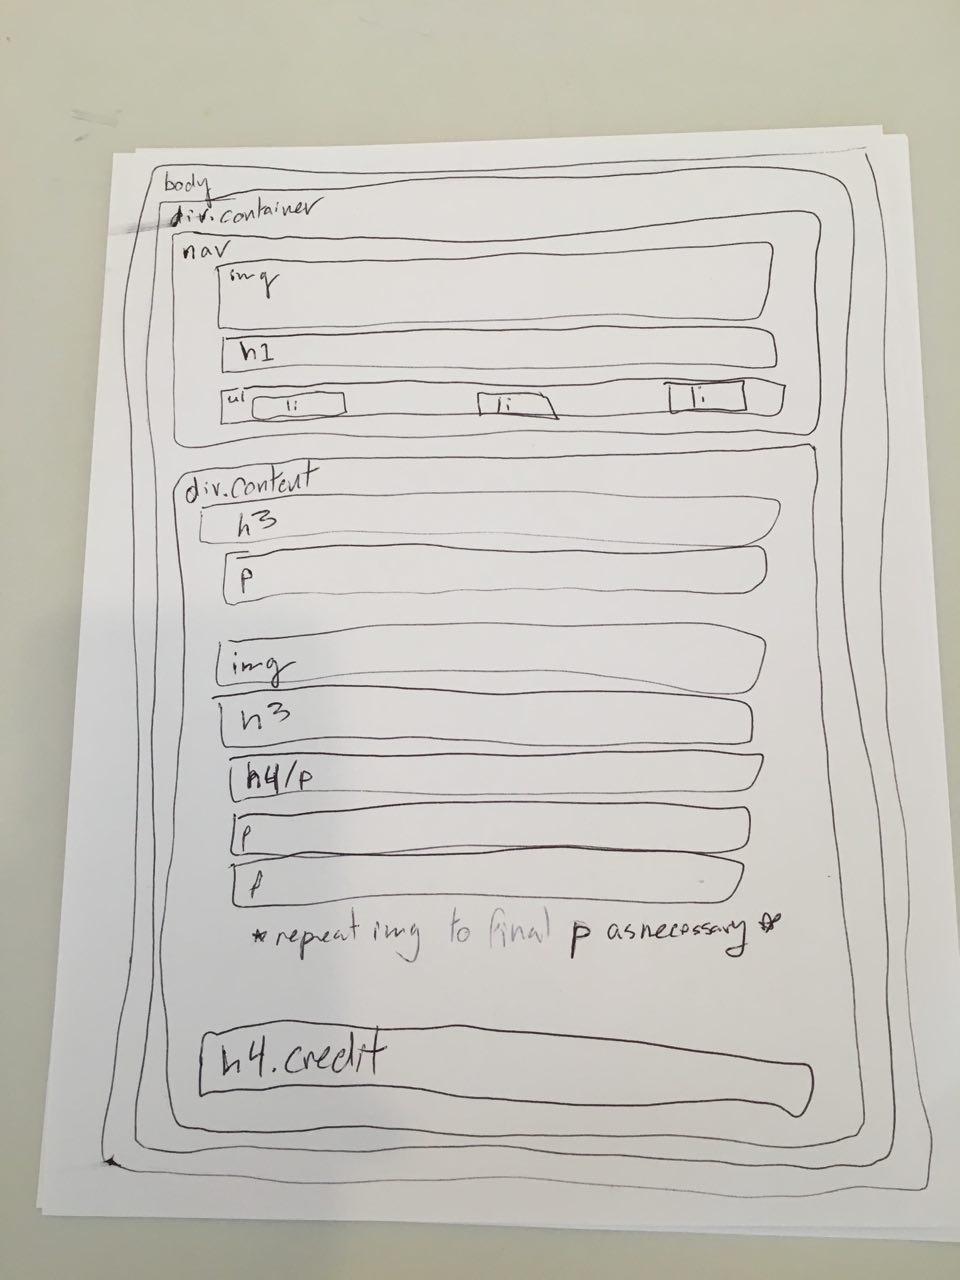 body
div.container
nav
img
h1
ul li li li
div.content
h3
p
img
h3
h4/p
p
p
*repeat img to final p asnecessary*
h4.credit